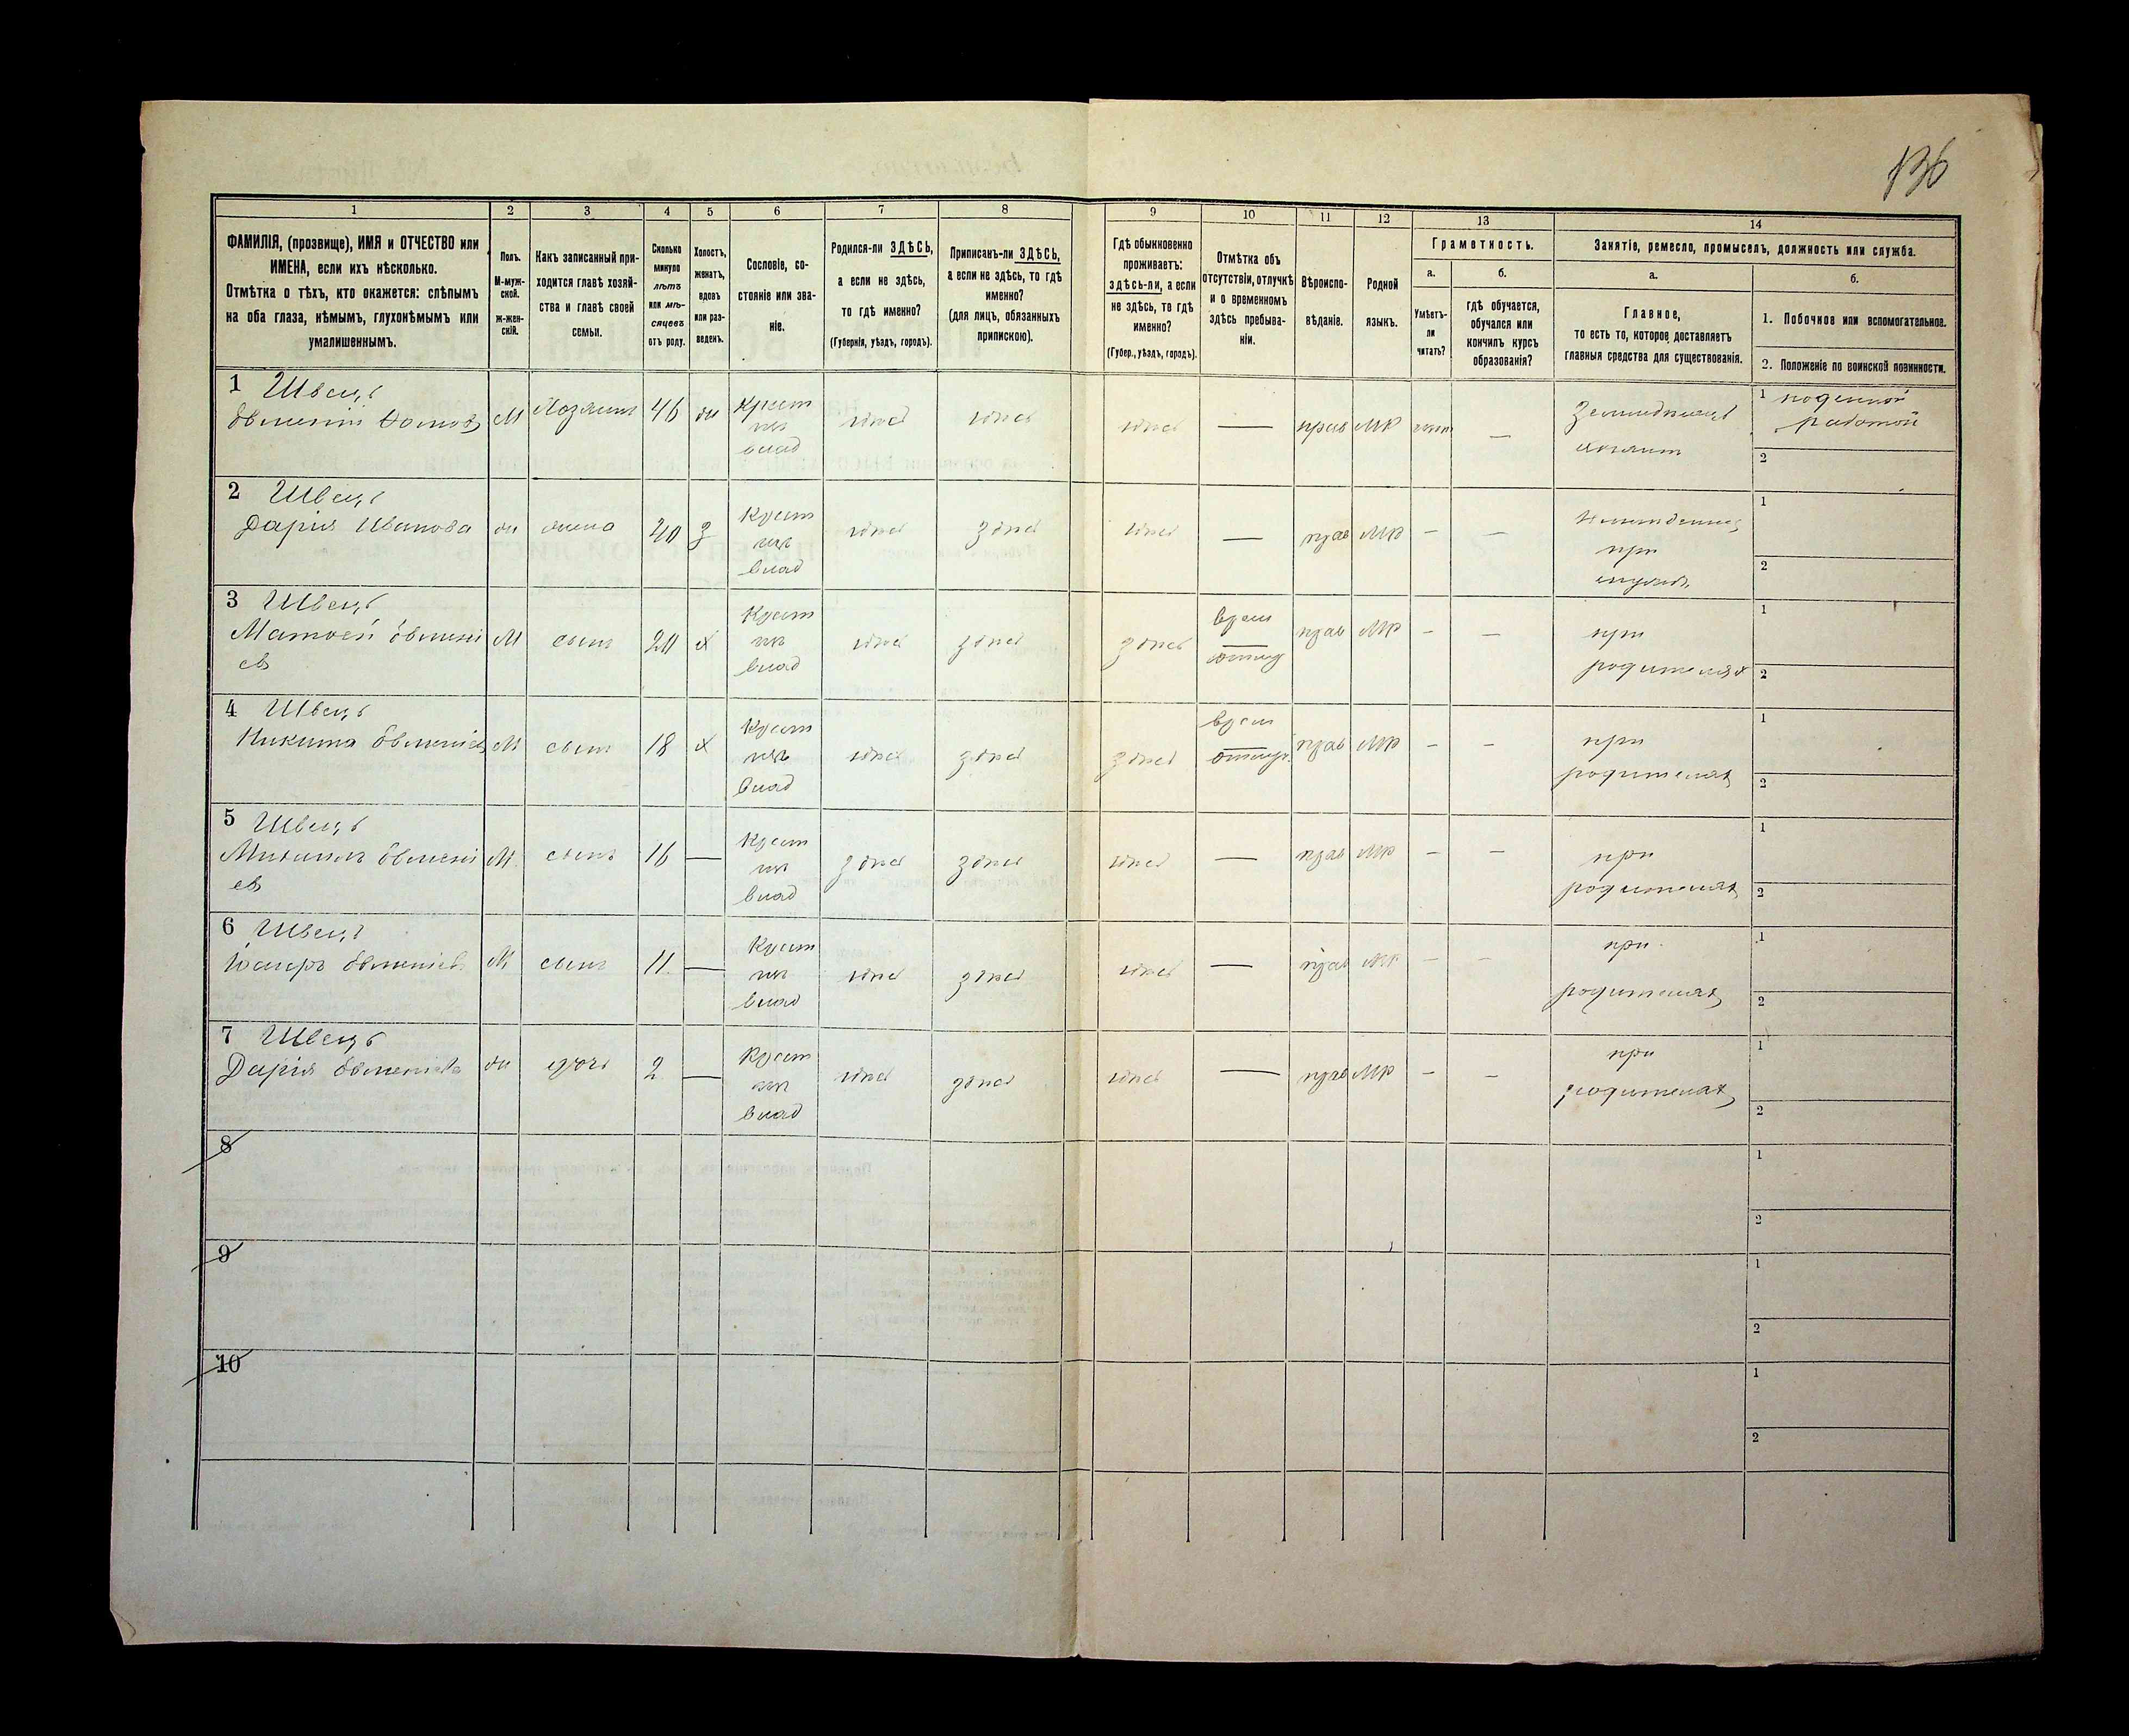 136
1 2 3 4 5 6 7 8 9 10 11 12 13 14
ФАМИЛІЯ, (прозвище), ИМЯ и ОТЧЕСТВО или
ИМЕНА, если ихъ нѣсколько.
Отмѣтка о тѣхъ, кто окажется: слѣпымъ
на оба глаза, нѣмымъ, глухонѣмымъ или
умалишеннымъ.
Полъ.
М-муж-
ской.
ж-жен-
скій.
Какъ записанный при-
ходится главѣ хозяй-
ства и главѣ своей
семьи.
Сколько
минуло
лѣтъ
или мѣ-
сяцевъ
отъ роду.
Холостъ,
женатъ,
вдовъ
или раз-
веденъ.
Сословіе, со-
стояніе или зва-
ніе.
Родился-ли ЗДѢСЬ,
а если не здѣсь,
то гдѣ именно?
(Губернія, уѣздъ, городъ).
Приписанъ-ли ЗДѢСЬ,
а если не здѣсь, то гдѣ
именно?
(для лицъ, обязанныхъ
припискою).
Гдѣ обыкновенно
проживаетъ:
здѣсь-ли, а если
не здѣсь, то гдѣ
именно?
(Губер., уѣздъ, городъ).
Отмѣтка объ
отсутствіи, отлучкѣ
и о временномъ
здѣсь пребыва-
ніи.
Вѣроиспо-
вѣданіе.
Родной
языкъ.
Грамотность.
а.
Умѣетъ-
ли
читать?
б.
гдѣ обучается,
обучался или
кончилъ курсъ
образованія?
Занятіе, ремесло, промыселъ, должность или служба.
а.
Главное,
то есть то, которое доставляетъ
главныя средства для существованія.
б.
1. Побочное или вспомогательное.
2. Положеніе по воинской повинности.
1 Швецъ
М Хозяинъ 46 жн Крест
влад
здѣсь здѣсь здѣсь — прав МР —
1 поденной
работой
2
2 Швецъ
Дарія Иванова жн жена 40 з Крест
влад
здѣсь здѣсь здѣсь — прав МР — —
при
1
2
3 Швецъ
Матвей Евмені
ев М сынъ 20 х Крест
влад
здѣсь здѣсь здѣсь врем
отлуч
прав МР — — при
родителях
1
2
4 Швецъ
Никита Евменіев М сынъ 18 х Крест
влад
здѣсь здѣсь здѣсь врем
отлуч
прав МР — — при
родителях
1
2
5 Швецъ
Михаилъ Евмені
ев М сынъ 16 — Крест
влад
здѣсь здѣсь здѣсь — прав МР — — при
родителях
1
2
6 Швецъ
Евменіев М сынъ 11 — Крест
влад
здѣсь здѣсь здѣсь — прав МР — — при
родителях
1
2
7 Швецъ
Дарія Евменіева жн дочь 2 — Крест
влад
здѣсь здѣсь здѣсь — прав МР — — при
родителях
1
2
8
1
2
9
1
2
10
1
2